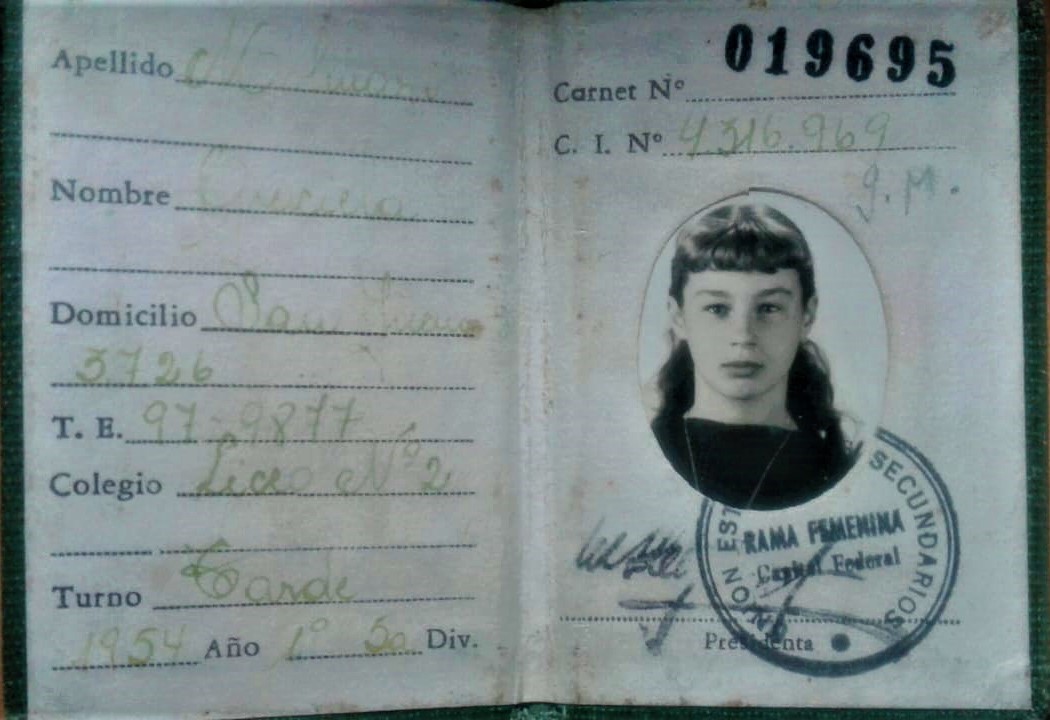 Apellido
Nombre
Domicilio San
3726
T. E. 97-9877
Colegio Liceo Nº 2
Turno Tarde
1954 Año 1º 5a Div.
019695
Carnet Nº
C. I. Nº 4.316.969
J. M.
SECUNDARIOS
RAMA FEMENINA
Capital Federal
Presidenta